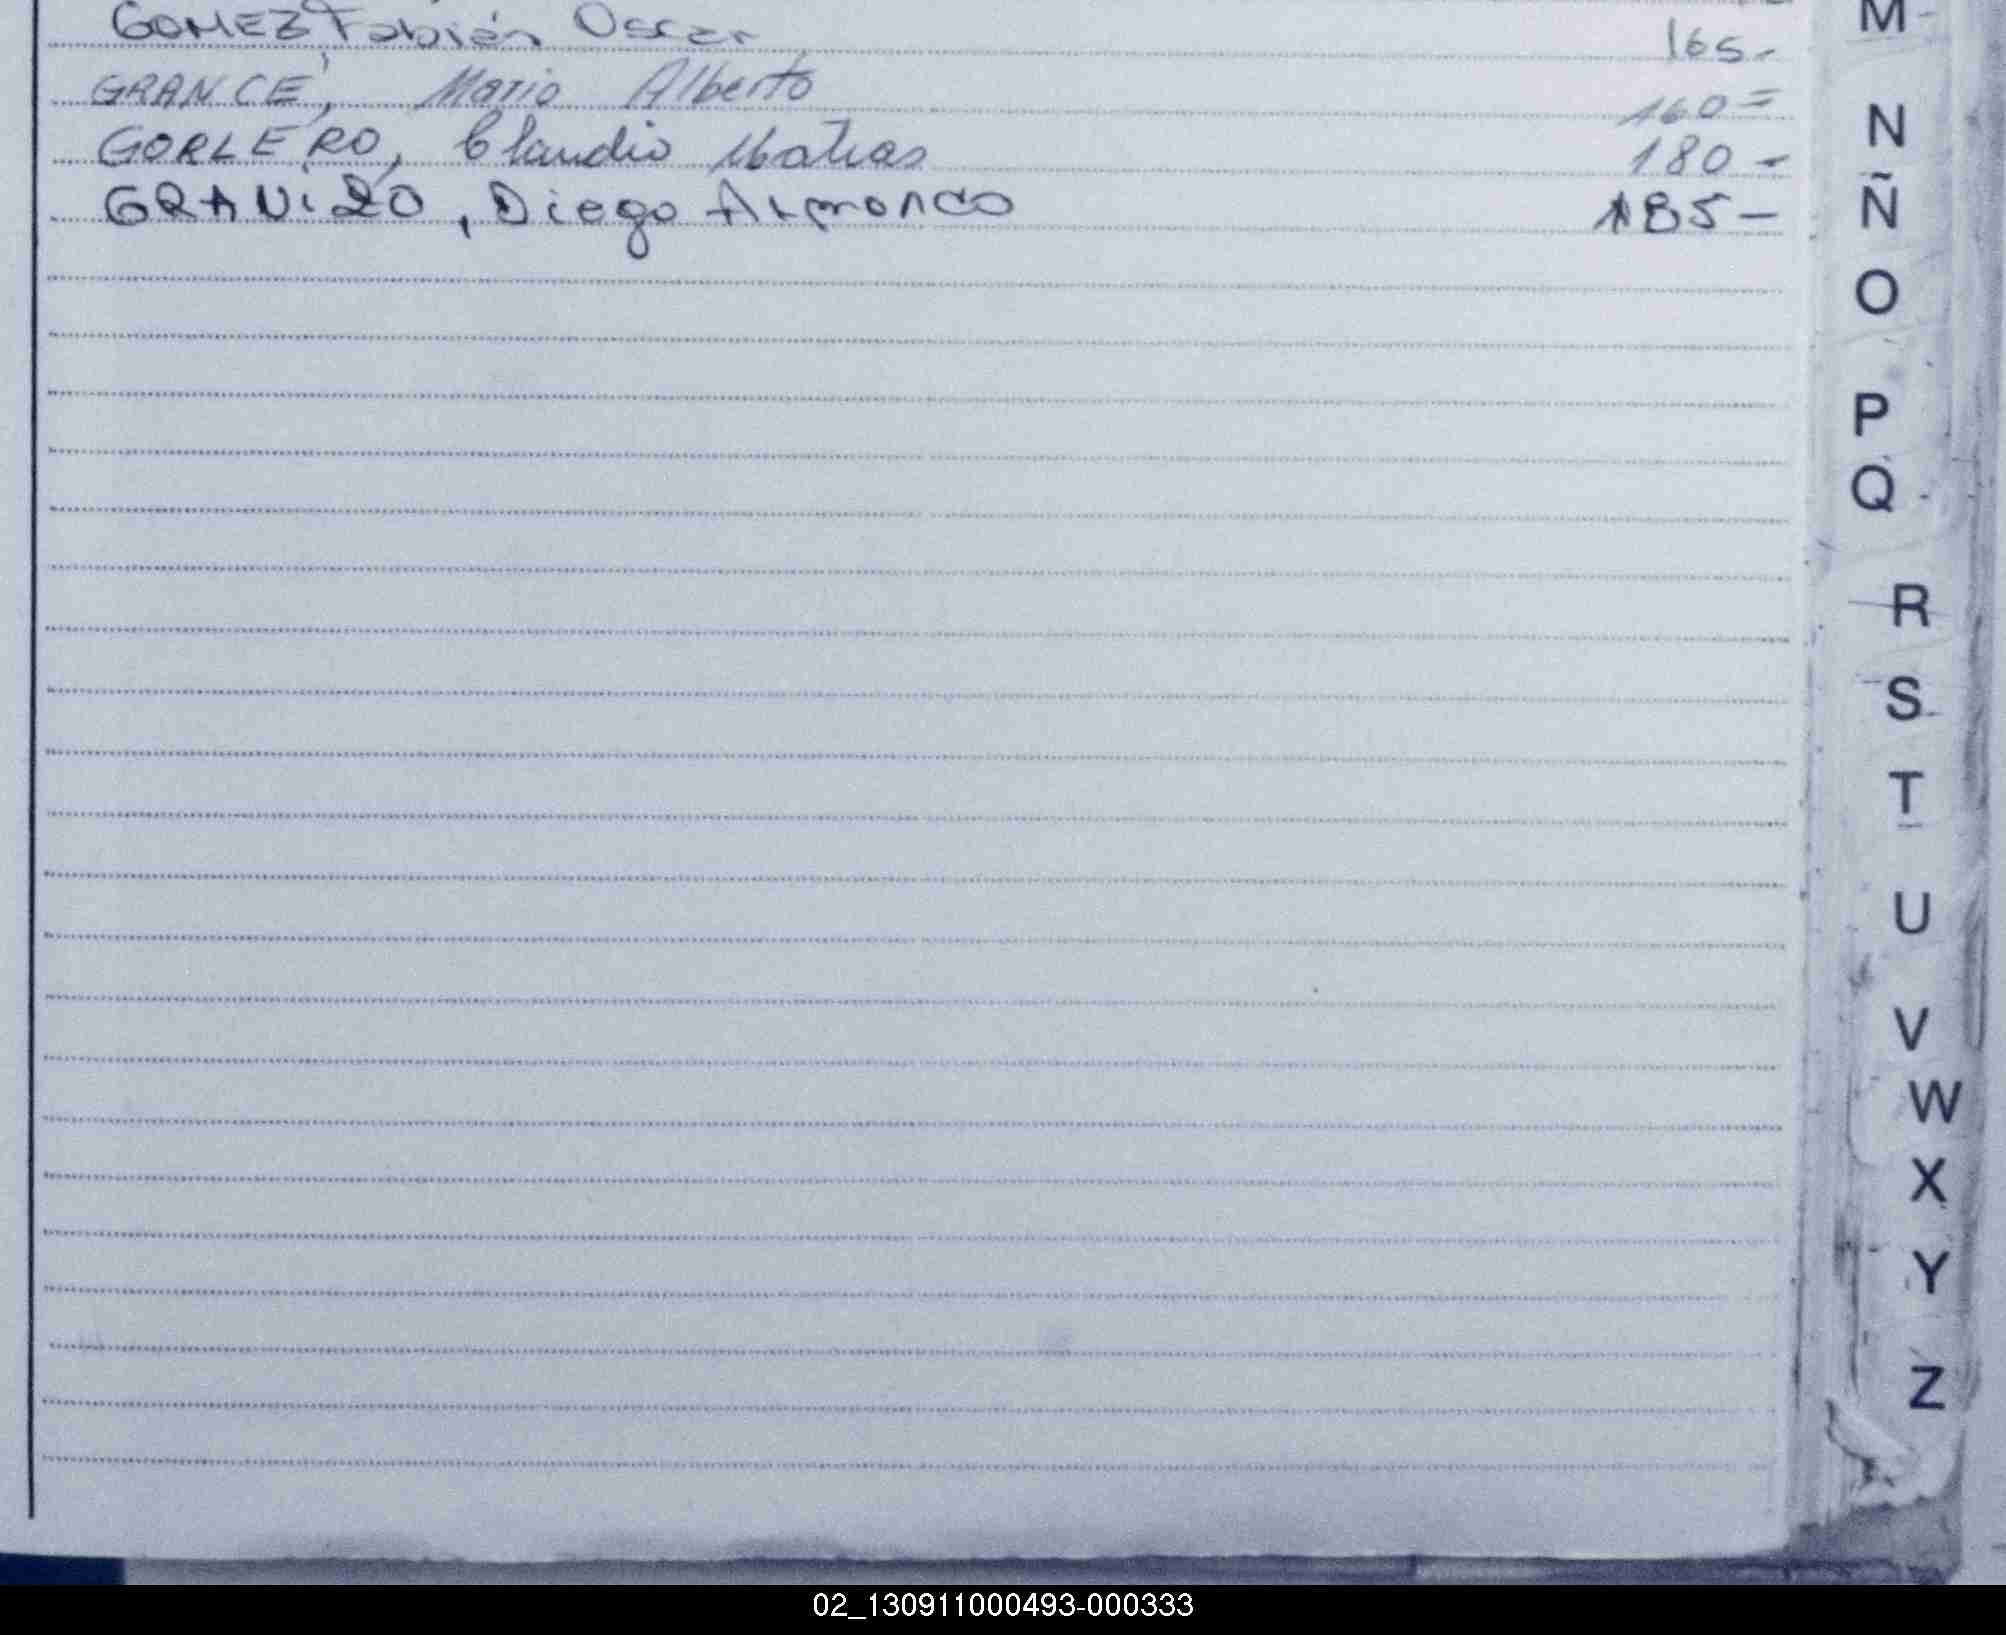 GOMEZ Fabián Oscar 165.-
GRANCE, Mario Alberto 160=
GORLERO, Claudio Matias 180-
GRANIZO, Diego Armando 185-
M
N
Ñ
O
P
Q
R
S
T
U
V
W
X
Y
Z
02_130911000493-000333